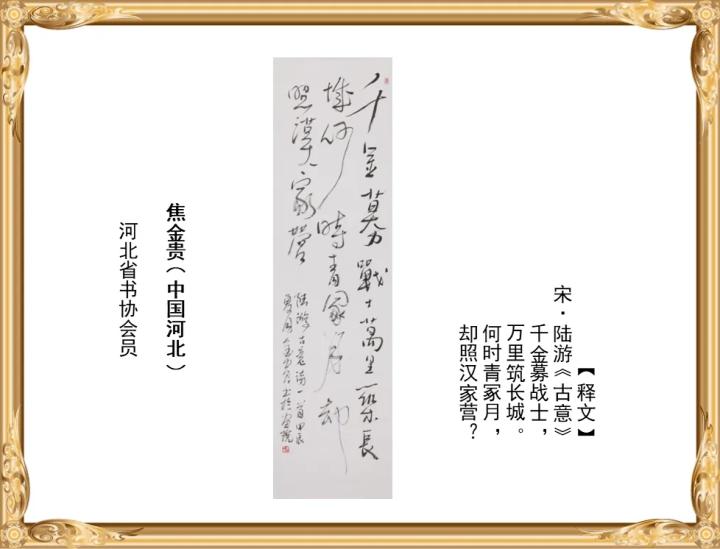 【释文】
宋·陆游《古意》
千金募战士，
万里筑长城。
何时青冢月，
却照汉家营？
千金募戰士萬里築長
城何時青冢月却
照漢家營
陸游古意詩一首甲辰
夏月
焦金贵（中国河北）
河北省书协会员